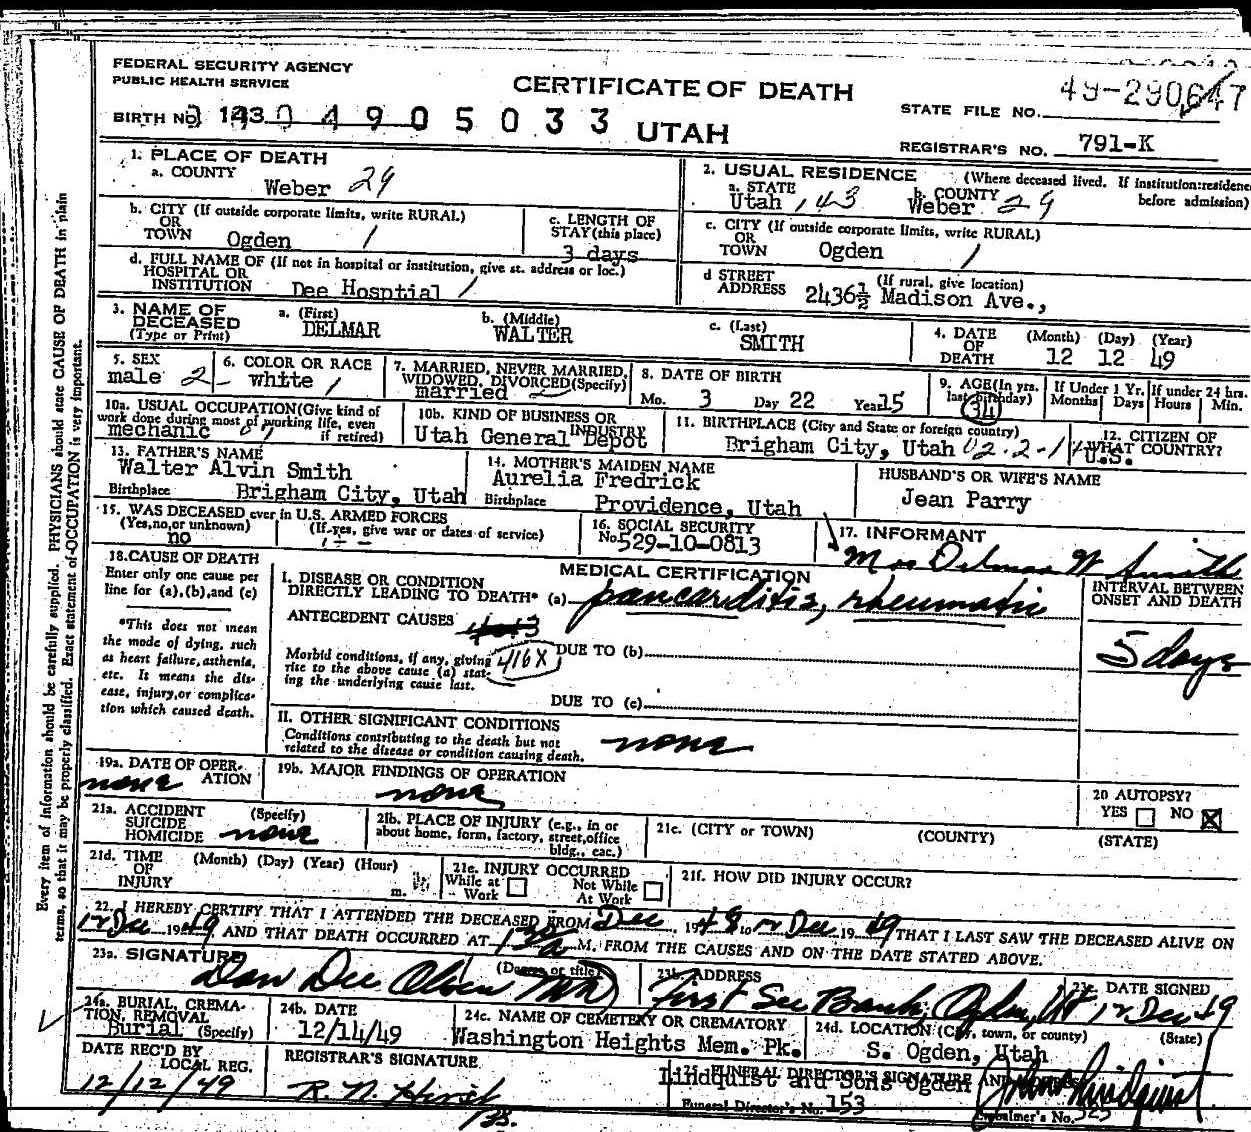 FEDERAL SECURITY AGENCY
PUBLIC HEALTH SERVICE
CERTIFICATE OF DEATH
STATE FILE NO. 49-290647
BIRTH NO. 143 0 4 9 0 5 0 3 3 UTAH
REGISTRAR'S NO. 791-K
1. PLACE OF DEATH
a. COUNTY Weber 29
2. USUAL RESIDENCE (Where deceased lived. If institution:residence before admission)
a. STATE Utah 143 b. COUNTY Weber 29
b. CITY (If outside corporate limits, write RURAL) OR TOWN Ogden 1
c. LENGTH OF STAY (this place) 3 days
c. CITY (If outside corporate limits, write RURAL) OR TOWN Ogden 1
d. FULL NAME OF (If not in hospital or institution, give st. address or loc.) HOSPITAL OR INSTITUTION Dee Hosptial 1
d STREET ADDRESS (If rural, give location) 2436½ Madison Ave.,
3. NAME OF DECEASED (Type or Print)
a. (First) DELMAR
b. (Middle) WALTER
c. (Last) SMITH
4. DATE OF DEATH (Month) (Day) (Year) 12 12 49
5. SEX male 2
6. COLOR OR RACE white 1
7. MARRIED, NEVER MARRIED, WIDOWED, DIVORCED (Specify) married 2
8. DATE OF BIRTH Mo. 3 Day 22 Year 15
9. AGE (In yrs. last birthday) 34
If Under 1 Yr. Months Days
If under 24 hrs. Hours Min.
10a. USUAL OCCUPATION (Give kind of work done during most of working life, even if retired) mechanic
10b. KIND OF BUSINESS OR INDUSTRY Utah General Depot
11. BIRTHPLACE (City and State or foreign country) Brigham City, Utah
12. CITIZEN OF WHAT COUNTRY? U.S.
13. FATHER'S NAME Walter Alvin Smith
Birthplace Brigham City, Utah
14. MOTHER'S MAIDEN NAME Aurelia Fredrick
Birthplace Providence, Utah
HUSBAND'S OR WIFE'S NAME Jean Parry
15. WAS DECEASED ever in U.S. ARMED FORCES (Yes,no,or unknown) (If yes, give war or dates of service) no
16. SOCIAL SECURITY No. 529-10-0813
17. INFORMANT Mrs Delmar W Smith
18. CAUSE OF DEATH
Enter only one cause per line for (a),(b),and (c)
*This does not mean the mode of dying, such as heart failure, asthenia, etc. It means the disease, injury, or complication which caused death.
MEDICAL CERTIFICATION
INTERVAL BETWEEN ONSET AND DEATH
I. DISEASE OR CONDITION DIRECTLY LEADING TO DEATH* (a) pancarditis, rheumatic
5 days
ANTECEDENT CAUSES
Morbid conditions, if any, giving rise to the above cause (a) stating the underlying cause last.
416X
DUE TO (b)
DUE TO (c)
II. OTHER SIGNIFICANT CONDITIONS
Conditions contributing to the death but not related to the disease or condition causing death. none
19a. DATE OF OPERATION none
19b. MAJOR FINDINGS OF OPERATION none
20 AUTOPSY? YES NO X
21a. ACCIDENT SUICIDE HOMICIDE (Specify) none
21b. PLACE OF INJURY (e.g., in or about home, form, factory, street, office bldg., eac.)
21c. (CITY or TOWN) (COUNTY) (STATE)
21d. TIME OF INJURY (Month) (Day) (Year) (Hour) m.
21e. INJURY OCCURRED While at Work Not While At Work
21f. HOW DID INJURY OCCUR?
22. I HEREBY CERTIFY THAT I ATTENDED THE DECEASED FROM Dec, 1949 to 12 Dec 1949 THAT I LAST SAW THE DECEASED ALIVE ON
12 Dec 1949 AND THAT DEATH OCCURRED AT M. FROM THE CAUSES AND ON THE DATE STATED ABOVE.
23a. SIGNATURE (Degree or title) Dan Dee Olsen MD
23b. ADDRESS First Sec Bank, Ogden, Ut
23c. DATE SIGNED 12 Dec 49
24a. BURIAL, CREMATION, REMOVAL (Specify) Burial
24b. DATE 12/14/49
24c. NAME OF CEMETERY OR CREMATORY Washington Heights Mem. Pk.
24d. LOCATION (City, town, or county) (State) S. Ogden, Utah
DATE REC'D BY LOCAL REG. 12/12/49
REGISTRAR'S SIGNATURE
FUNERAL DIRECTOR'S SIGNATURE AND ADDRESS Lindquist and Sons Ogden
Funeral Director's No. 153
Embalmer's No. 325
Every item of information should be carefully supplied. PHYSICIANS should state CAUSE OF DEATH in plain
terms, so that it may be properly classified. Exact statement of OCCUPATION is very important.